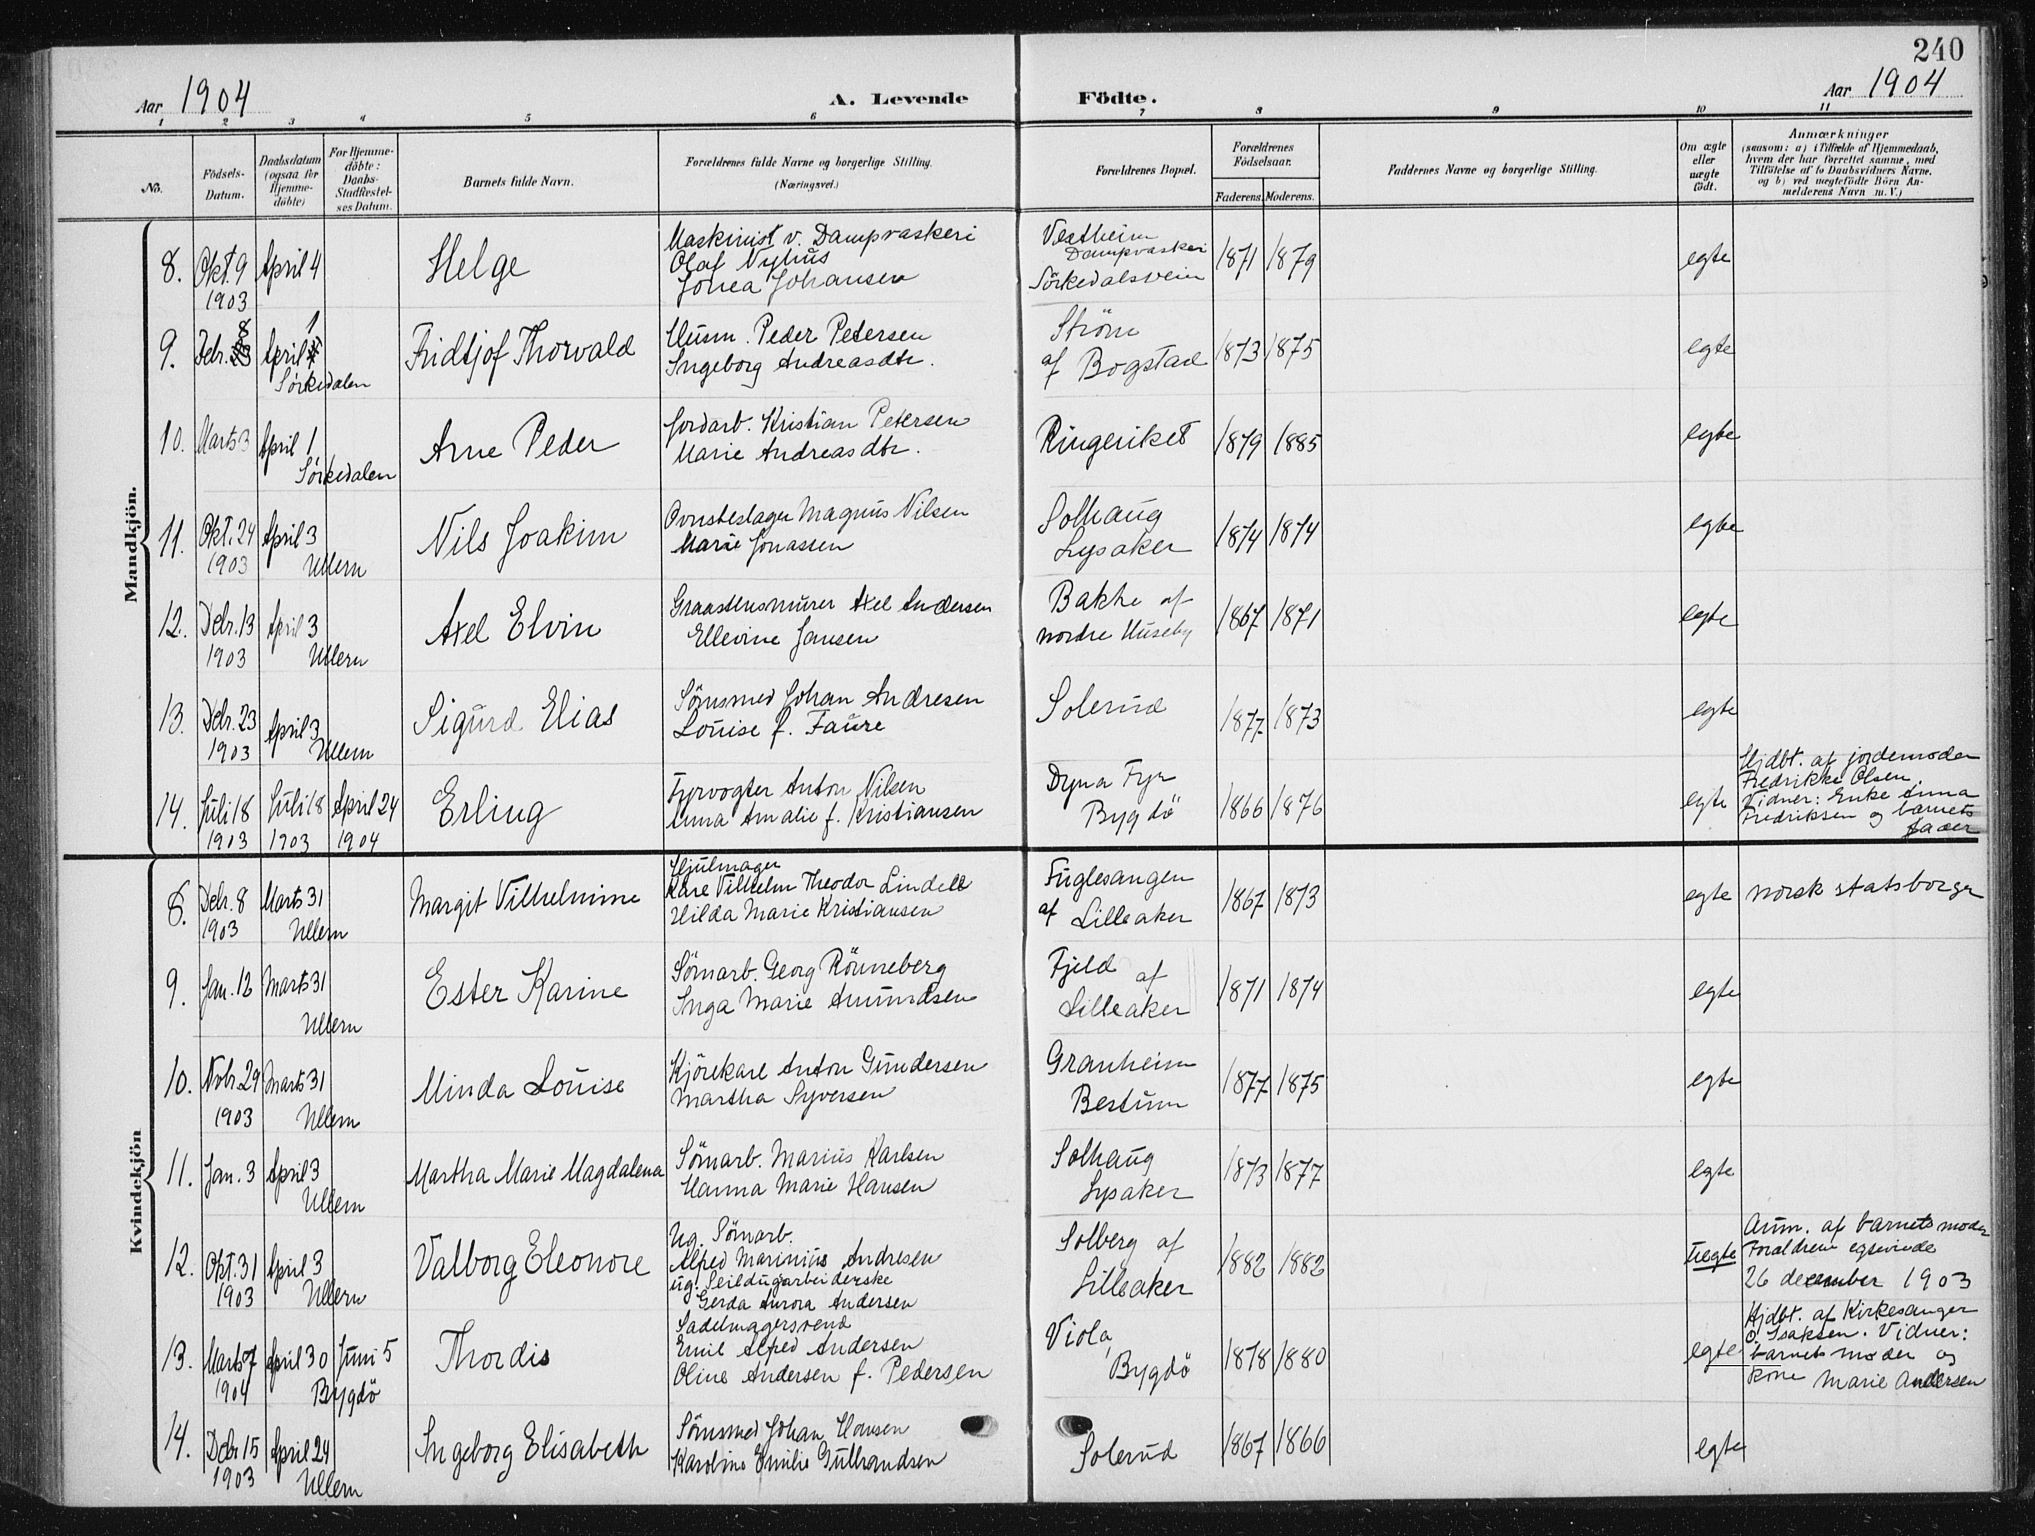 240
Aar 1904
A. Levende Födte.
Aar 1904
1 2 3 4 5 6 7 8 9 10 11
No.
Födsels-
Datum.
Daabsdatum
(ogsaa for
Hjemme-
döbte)
For Hjemme-
döbte:
Daabs-
Stadfæstel-
ses Datum.
Barnets fulde Navn.
Forældrenes fulde Navne og borgerlige Stilling.
(Næringsvei.)
Forældrenes Bopæl.
Forældrenes
Födselsaar.
Faderens. Moderens.
Faddernes Navne og borgerlige Stilling.
Om ægte
eller
uægte
födt.
Anmærkninger
(saasom: a) i Tilfælde af Hjemmedaab,
hvem der har forrettet samme, med
Tilföielse af to Daabsvidners Navne,
og b) ved uægtefödte Börn An-
melderens Navn m. V.)
Mandkjön.
8. Okt. 9
1903
April 4
Helge
Maskinist v. Dampvaskeri
Olaf Nyhus
Jonea Johansen
Vestheim
Dampvaskeri
Sörkedalsvein
1871 1879
egte
9. Febr. 8
April 1
Sörkedalen
Fridtjof Thorvald
Husm. Peder Petersen
Ingeborg Andreasdtr.
Ström
af Bogstad
1873 1875
egte
10. Marts 3
April 1
Sörkedalen
Arne Peder
Jordarb. Kristian Petersen
Marie Andreasdtr.
Ringeriket
1879 1885
egte
11. Okt. 24
1903
April 3
Ullern
Nils Joakim
Ovnsbeslager Magnus Nilsen
Marie Jonassen
Solhaug
Lysaker
1874 1874
egte
12. Debr. 13
1903
April 3
Ullern
Axel Elvin
Graastensmurer Axel Andersen
Ellevine Jansen
Bakke af
nordre Huseby
1867 1871
egte
13. Debr. 23
1903
April 3
Ullern
Sigurd Elias
Sömsmed Johan Andresen
Louise f. Faure
Solerud
1877 1873
egte
14. Juli 18
1903
Juli 18
1903
April 24
1904
Erling
Fyrvogter Anton Nilsen
Anna Amalie f. Kristiansen
Dyna Fyr
Bygdö
1866 1876
egte
Hjdbt. af jordemoder
Fredrikke Olsen.
Vidner: Enke Anna
Fredriksen og barnets
fader
Kvindekjön
8. Debr. 8
1903
Marts 31
Ullern
Margit Vilhelmine
Hjulmager
Karl Vilhelm Theodor Lindell
Hilda Marie Kristiansen
Fuglesangen
af Lilleaker
1867 1873
egte
norsk statsborger
9. Jan. 12
Marts 31
Ullern
Ester Karine
Sömarb. Georg Rönneberg
Inga Marie Amundsen
Fjeld af
Lilleaker
1871 1874
egte
10. Novbr. 29
1903
Marts 31
Ullern
Minda Louise
Kjörekarl Anton Gundersen
Martha Syversen
Granheim
Bestum
1877 1875
egte
11. Jan. 3
April 3
Ullern
Martha Marie Magdalena
Sömarb. Marius Karlsen
Hanna Marie Hansen
Solhaug
Lysaker
1873 1877
egte
12. Okt. 31
1903
April 3
Ullern
Valborg Eleonore
Ug. Sömarb.
Alfred Marinius Andresen
ug. Seildugarbeiderske
Gerda Aurora Andersen
Solberg af
Lilleaker
1882 1882
uegte
Anm. af barnets moder
Foraldrene egteviede
26 december 1903
13. Marts 7
1904
April 30
Juni 5
Bygdö
Thordis
Sadelmagersvend
Emil Alfred Andersen
Oline Andersen f. Pedersen
Viola,
Bygdö
1878 1880
egte
Hjdbt. af Kirkesanger
O. Isaksen. Vidner:
barnets moder og
kone Marie Andersen
14. Debr 15
1903
April 24
Ullern
Ingeborg Elisabeth
Sömsmed Johan Hansen
Karoline Emilie Gulbrandsen
Solerud
1867 1866
egte